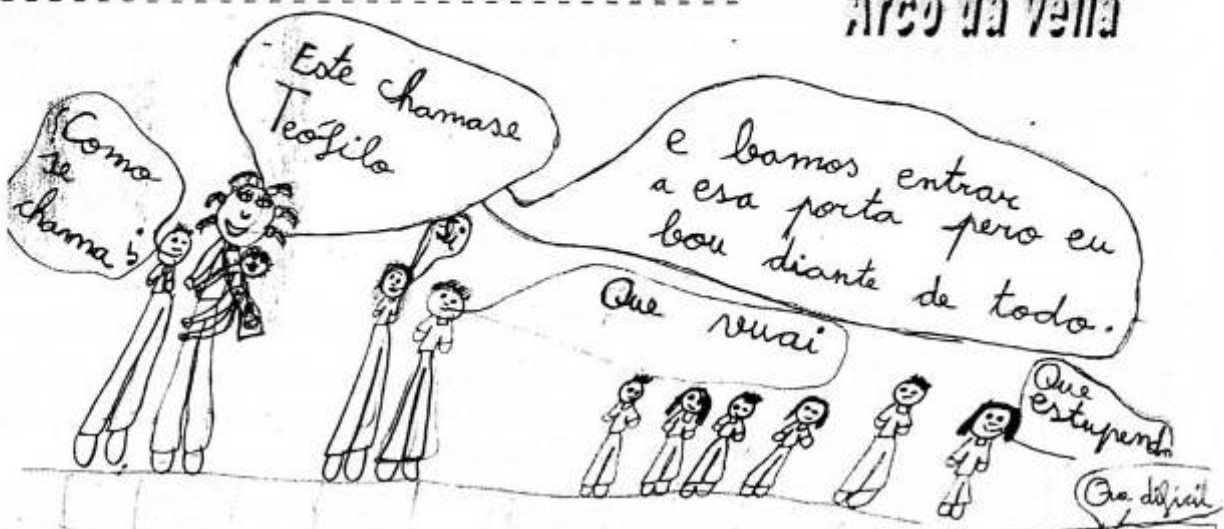 Arco da Vella
Como
se
chama?
Este chamase
Teófilo
e bamos entrar
a esa porta pero eu
bou diante de todo.
Si
Que vuai
Que
estupendo
Que dificil